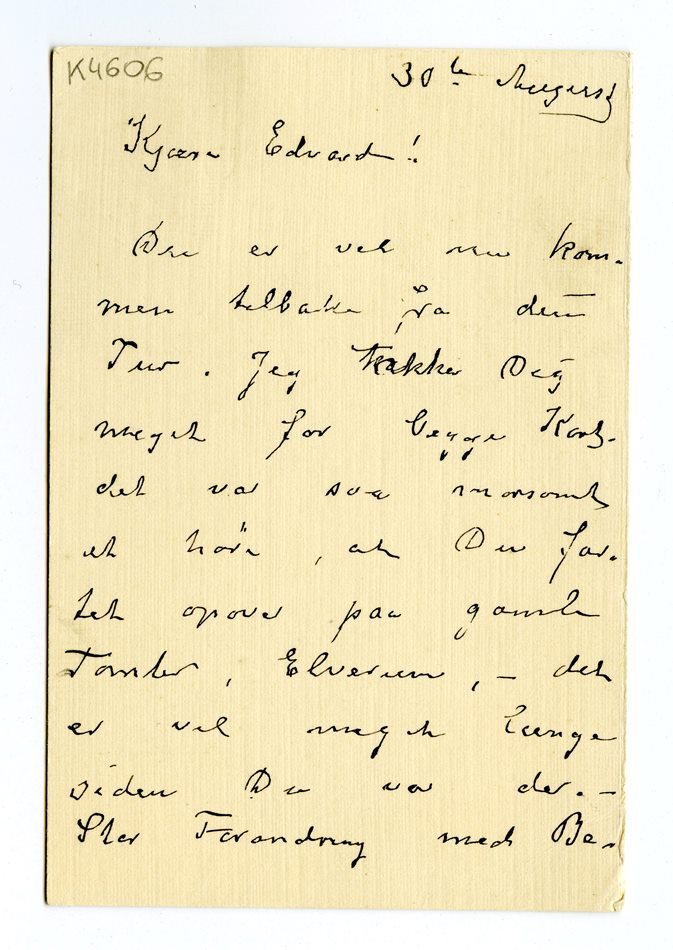 K4606
30te August
Kjære Edvard!
Du er vel nu kom-
men tilbake fra din
Tur. Jeg takker Dig
meget for begge Kort,
det var saa morsomt
at høre, at Du far-
tet opover paa gamle
Tomter, Elverum, – det
er vel meget længe
siden Du var der. –
Stor Forandring med Be-